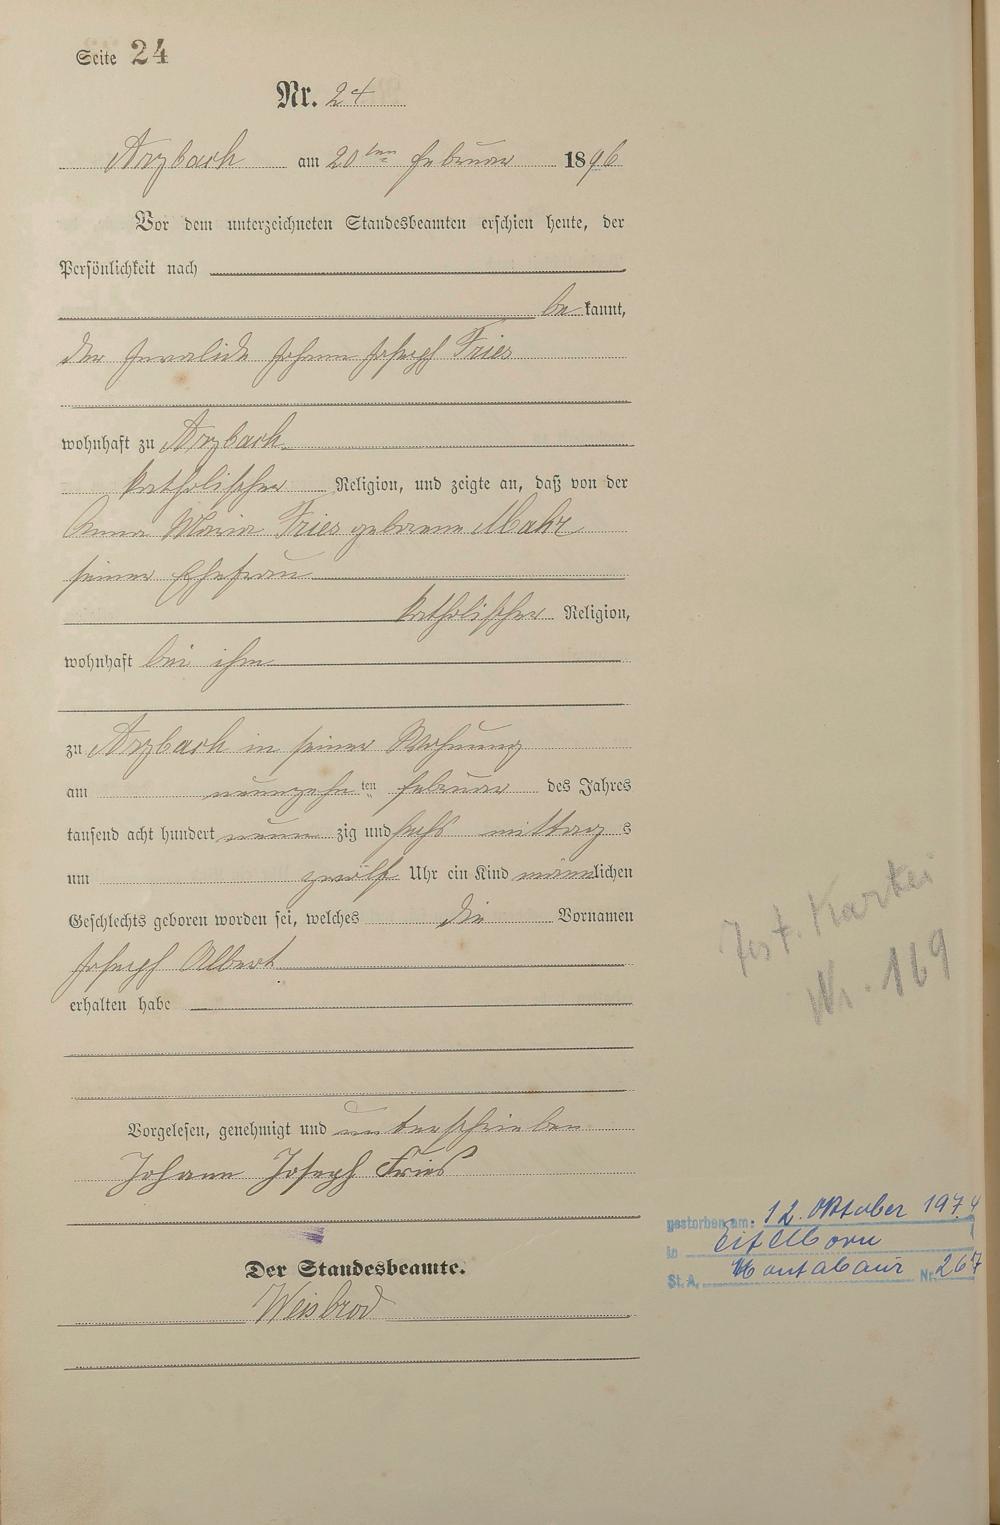 Seite 24
Nr. 24
Arzbach am 20ten Februar 1896
Vor dem unterzeichneten Standesbeamten erschien heute, der
Persönlichkeit nach
be kannt,
der Invalide Johann Joseph Fries
wohnhaft zu Arzbach
katholischer Religion, und zeigte an, daß von der
Anna Maria Fries geborene Mahr
seiner Ehefrau
katholischer Religion,
wohnhaft bei ihm
zu Arzbach in seiner Wohnung
am neunzehn ten Februar des Jahres
tausend acht hundert neun zig und sechs mittag s
um zwölf Uhr ein Kind männlichen
Geschlechts geboren worden sei, welches die Vornamen
Joseph Albert
erhalten habe
Vorgelesen, genehmigt und unterschrieben
Johann Joseph Fries
Der Standesbeamte.
Weisbrod
Kartei
Nr. 169
gestorben am: 12. Oktober 1974
in Eitelborn
St. A. Montabaur Nr. 267